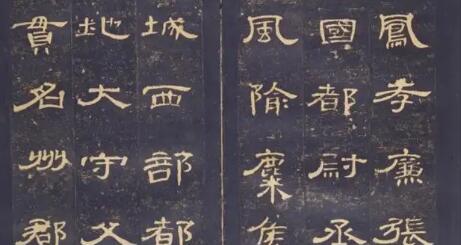 鳳孝廉張
國都尉丞
風隃麋侯
城西部都
地大守父
貫名州郡